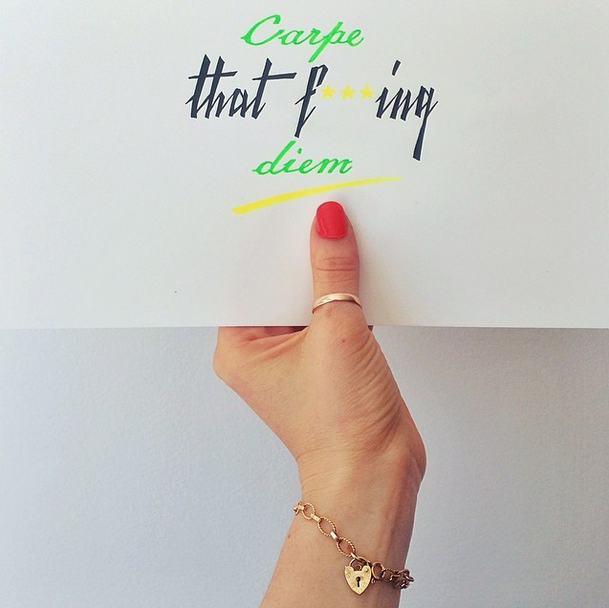 Carpe
that f***ing
diem